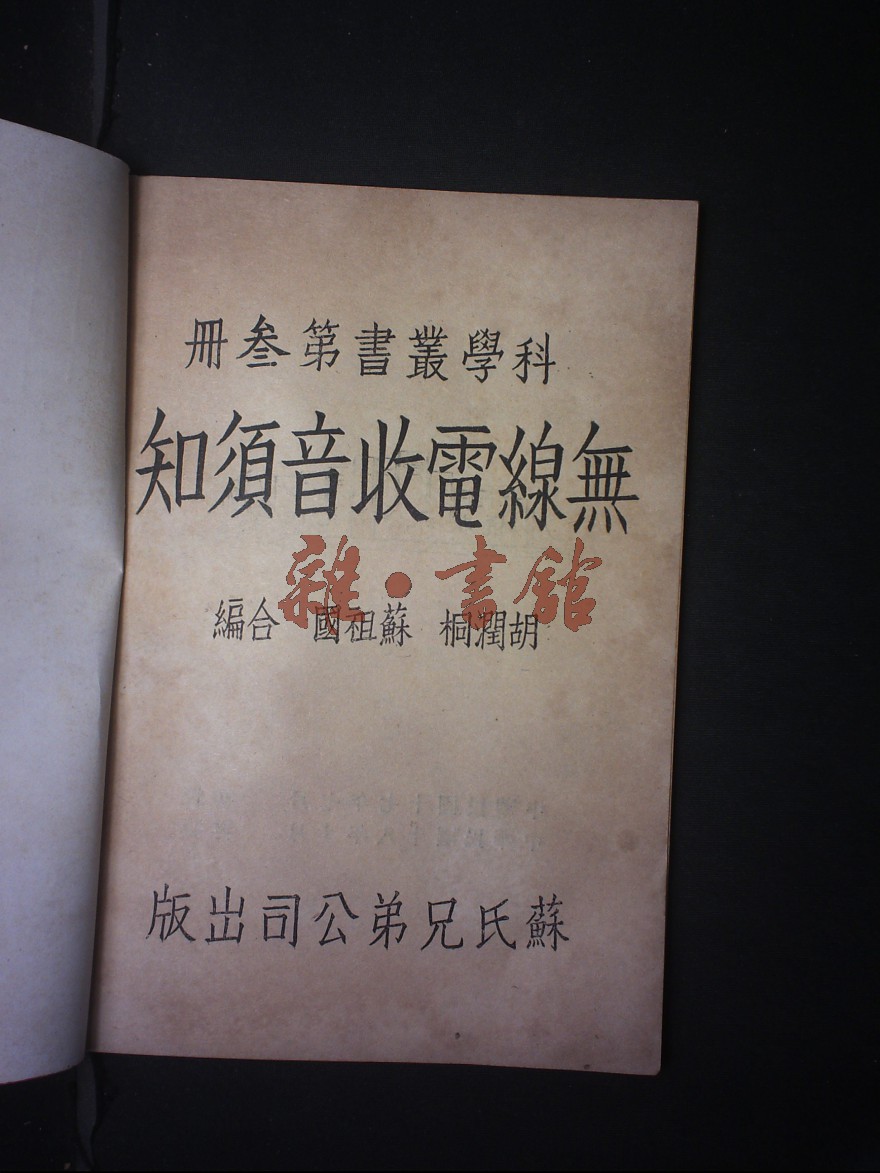 科學叢書第叁冊
無線電收音須知
胡潤桐 蘇祖國 合編
雜·書館
蘇氏兄弟公司出版